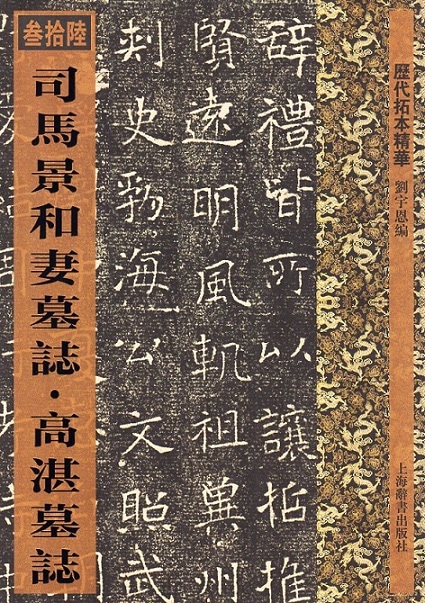 叁拾陸
司馬景和妻墓誌·高湛墓誌
辭禮皆所以讓哲推
賢遠明風軌祖冀州
刺史勃海公文昭武
歷代拓本精華
劉宇恩編
上海辭書出版社